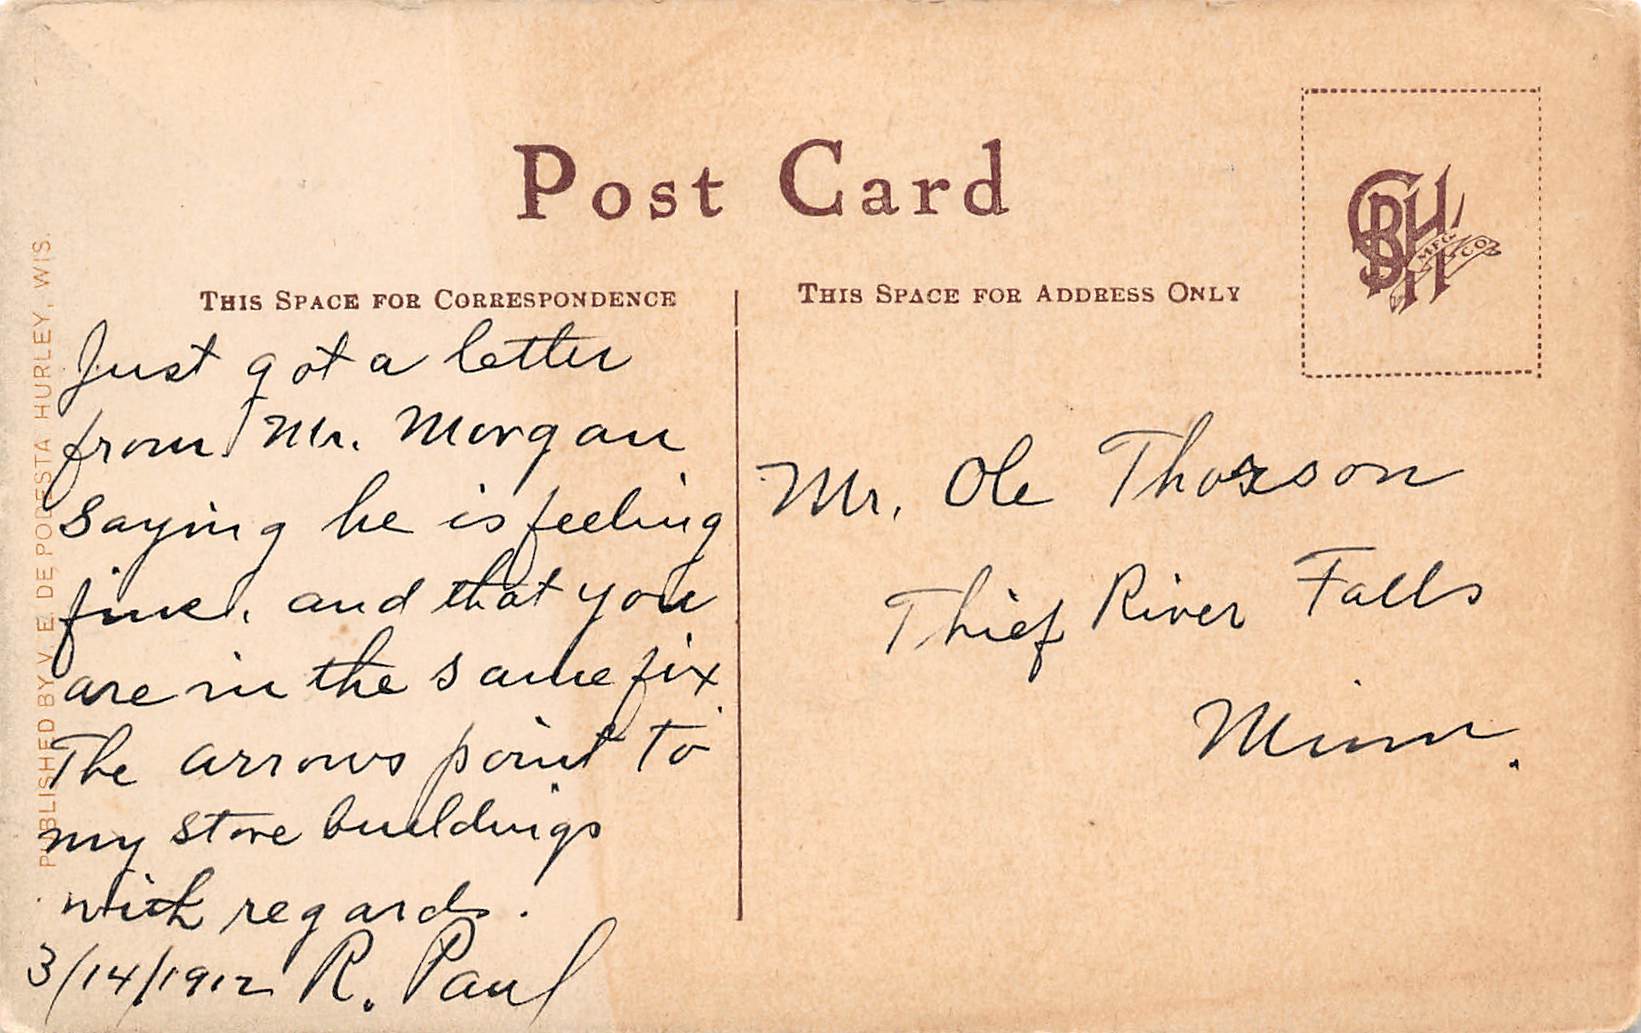 Post Card
THIS SPACE FOR CORRESPONDENCE
THIS SPACE FOR ADDRESS ONLY
CBHH
MFG CO
PUBLISHED BY V. E. DE PORESTA HURLEY, WIS.
Just got a letter
from Mr. Morgan
saying he is feeling
fine, and that you
are in the same fix
The arrows point to
my store buildings
with regards.
3/14/1912 R. Paul
Mr. Ole Thorson
Thief River Falls
Minn.